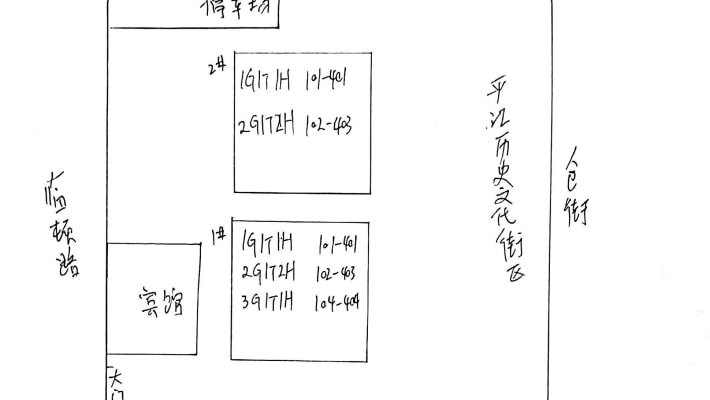 停车场
2#
1G1T1H 101-401
2G1T2H 102-403
平江历史文化街区
仓街
临顿路
1#
1G1T1H 101-401
2G1T2H 102-403
3G1T1H 104-404
宾馆
大门